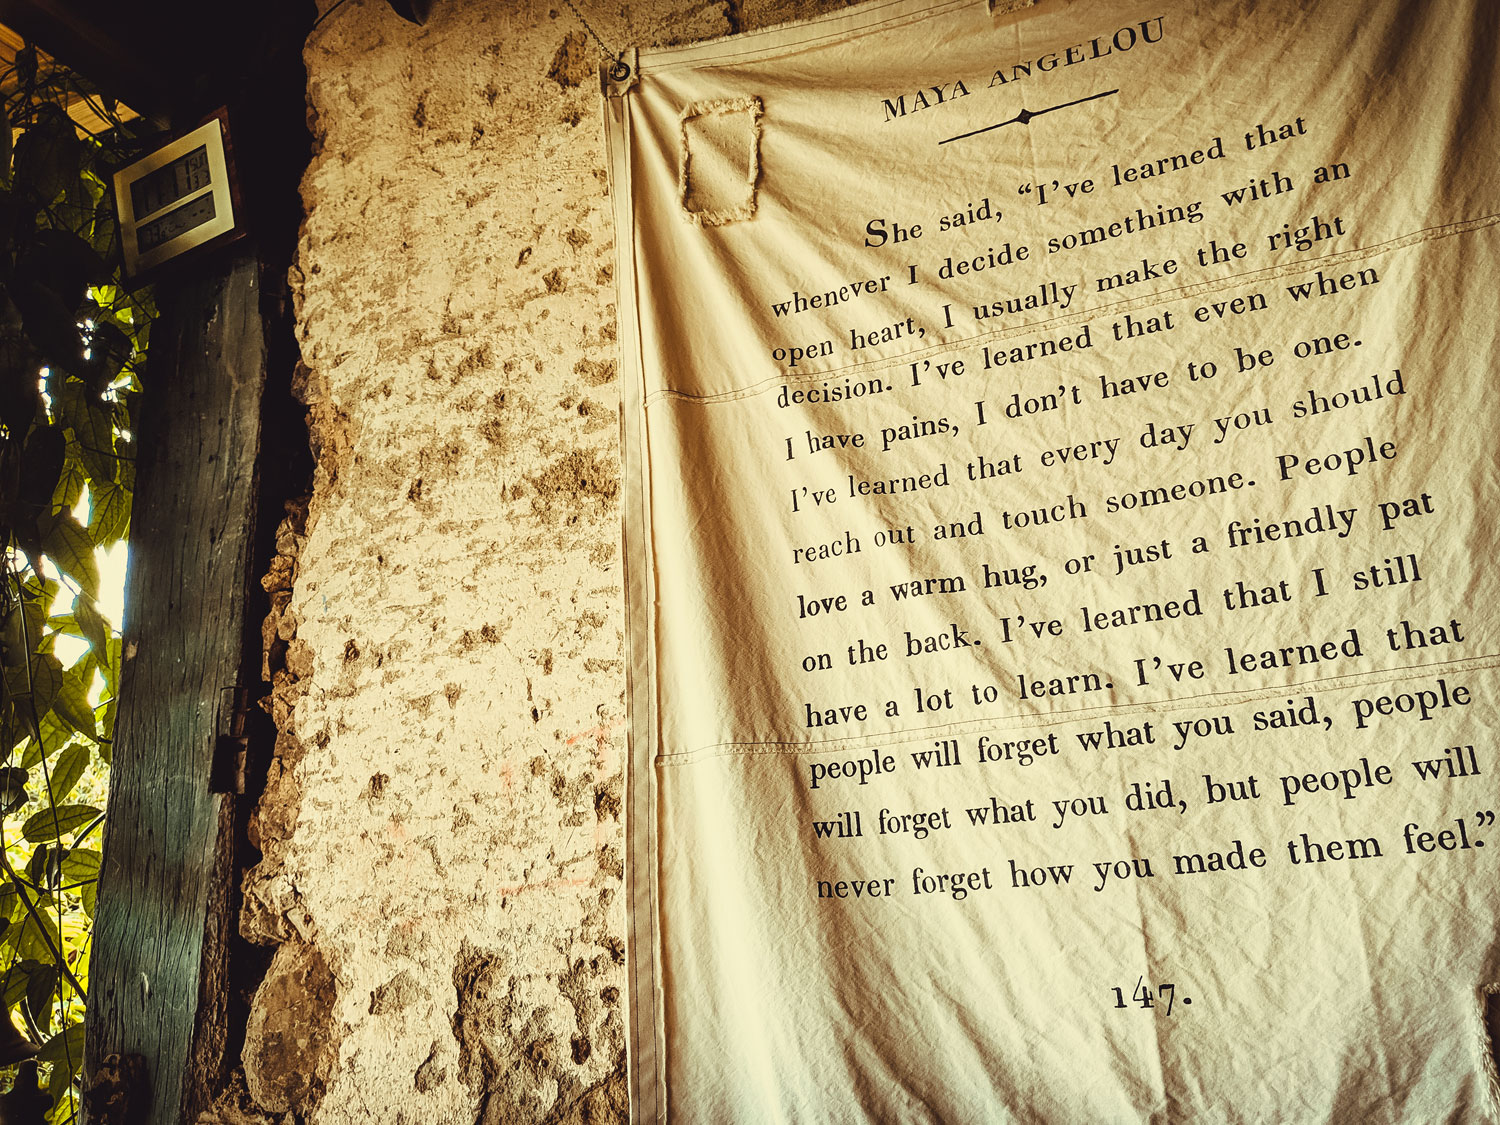 MAYA ANGELOU
She said, “I’ve learned that
whenever I decide something with an
open heart, I usually make the right
decision. I’ve learned that even when
I have pains, I don’t have to be one.
I’ve learned that every day you should
reach out and touch someone. People
love a warm hug, or just a friendly pat
on the back. I’ve learned that I still
have a lot to learn. I’ve learned that
people will forget what you said, people
will forget what you did, but people will
never forget how you made them feel.”
147.